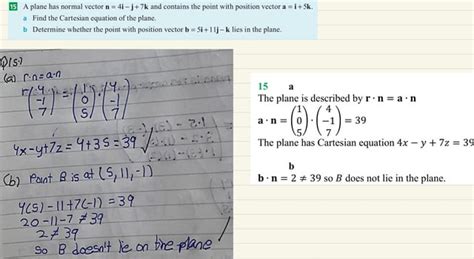 15 A plane has normal vector n = 4i – j + 7k and contains the point with position vector a = i + 5k.
a Find the Cartesian equation of the plane.
b Determine whether the point with position vector b = 5i + 11j – k lies in the plane.
Q15)
(a) r·n = a·n
r(4 -1 7) = (1 0 5)·(4 -1 7)
4x-y+7z = 4+35 = 39
(b) Point B is at (5, 11, -1)
4(5) - 11 + 7(-1) = 39
20 - 11 - 7 ≠ 39
2 ≠ 39
So B doesn't lie on the plane
15 a
The plane is described by r · n = a · n
a · n = (1 0 5) · (4 -1 7) = 39
The plane has Cartesian equation 4x – y + 7z = 39
b
b · n = 2 ≠ 39 so B does not lie in the plane.